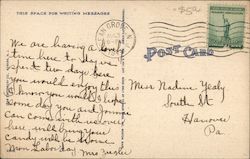 THIS SPACE FOR WRITING MESSAGES
OCEAN GROVE N.J.
POST CARD
We are having a lovely
time here to day we
spent two days here
you would enjoy this
I know you would hope
some day you and
can come with us over
here will bring your
candy will be home
on Labor day Mrs
Miss Nadine Yealy
South St
Hanover
Pa.